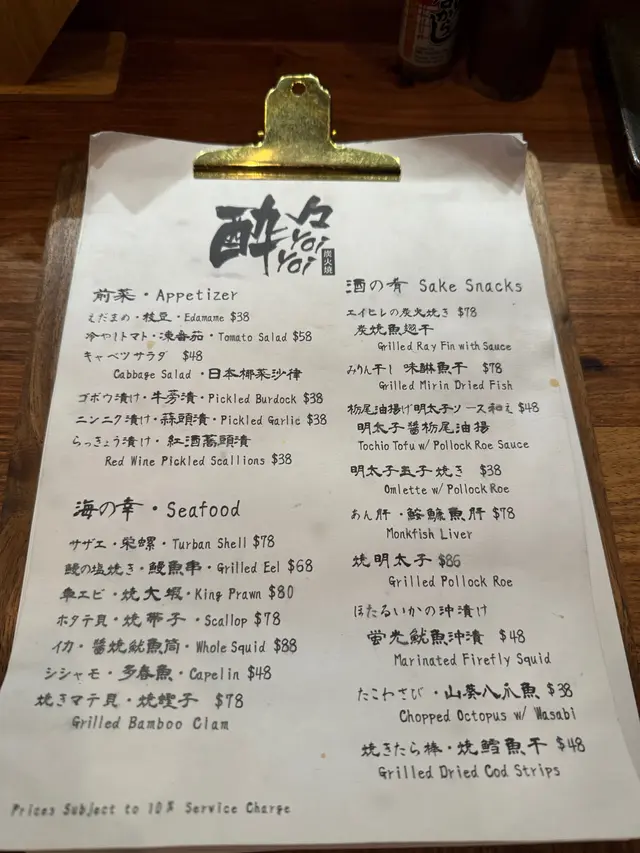 酔々
YOI
YOI
炭火焼
前菜・Appetizer
えだまめ・枝豆・Edamame $38
冷やしトマト・凍番茄・Tomato Salad $58
キャベツサラダ $48
Cabbage Salad・日本椰菜沙律
ゴボウ漬け・牛蒡漬・Pickled Burdock $38
ニンニク漬け・蒜頭漬・Pickled Garlic $38
らっきょう漬け・紅酒蕎頭漬
Red Wine Pickled Scallions $38
海の幸・Seafood
サザエ・栄螺・Turban Shell $78
鰻の塩焼き・鰻魚串・Grilled Eel $68
車エビ・焼大蝦・King Prawn $80
ホタテ貝・焼帶子・Scallop $78
イカ・醬焼魷魚筒・Whole Squid $88
シシャモ・多春魚・Capelin $48
焼きマテ貝・焼蟶子 $78
Grilled Bamboo Clam
Prices Subject to 10% Service Charge
酒の肴 Sake Snacks
エイヒレの炭火焼き $78
炭焼魚翅干
Grilled Ray Fin with Sauce
みりん干し 味醂魚干 $78
Grilled Mirin Dried Fish
栃尾油揚げ明太子ソース和え $48
明太子醬栃尾油揚
Tochio Tofu w/ Pollock Roe Sauce
明太子玉子焼き $38
Omlette w/ Pollock Roe
あん肝・鮟鱇魚肝・$78
Monkfish Liver
焼明太子 $86
Grilled Pollock Roe
ほたるいかの沖漬け
螢光魷魚沖漬 $48
Marinated Firefly Squid
たこわさび・山葵八爪魚 $38
Chopped Octopus w/ Wasabi
焼きたら棒・焼鱈魚干 $48
Grilled Dried Cod Strips